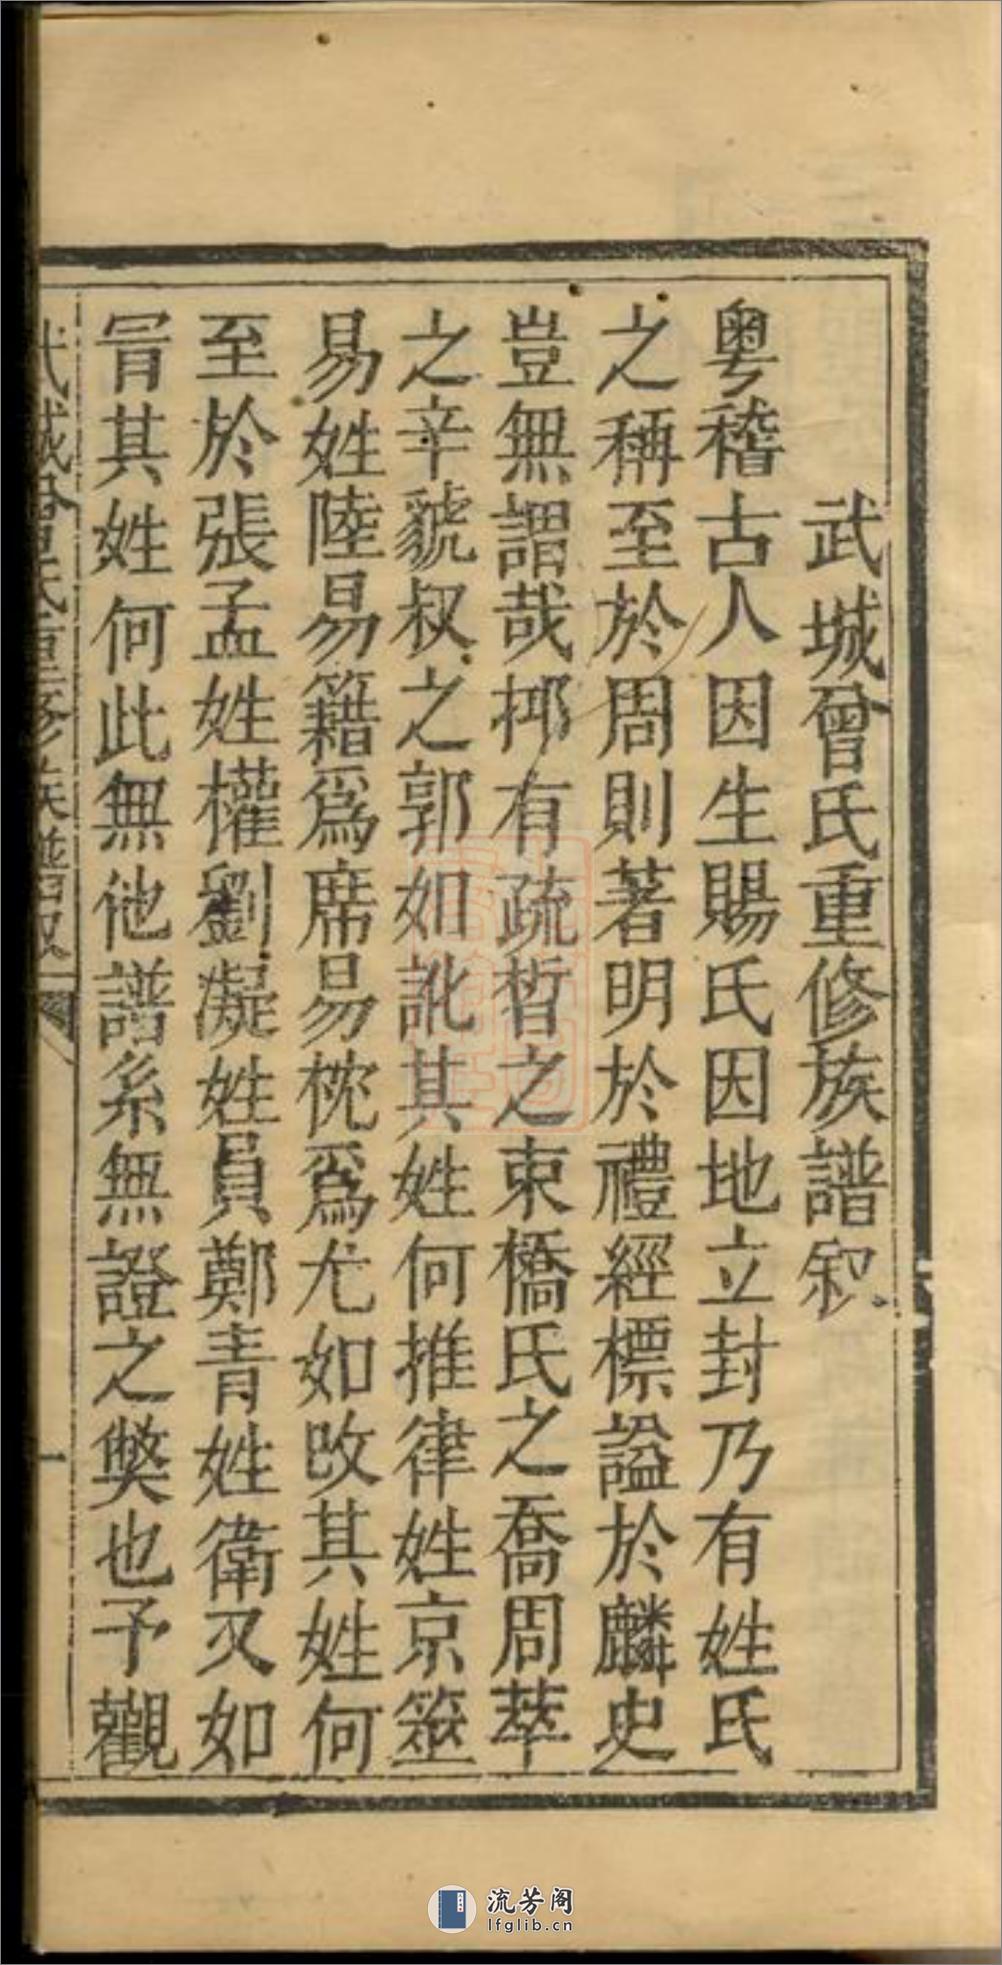 武城曾氏重修族譜叙
粤稽古人因生賜氏因地立封乃有姓氏
之稱至於周則著明於禮經標謚於麟史
豈無謂哉抑有疏晳之束橋氏之喬周莘
之辛虢叔之郭如訛其姓何推律姓京筮
易姓陸易籍爲席易枕爲尤如改其姓何
至於張孟姓權劉凝姓員鄭青姓衛又如
冐其姓何此無他譜系無證之獘也予觀
武城曾氏重修族譜叙 一
流芳阁
lfglib.cn